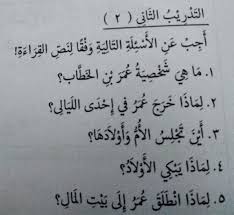 التَّدْرِيْبُ الثَّانِي ( ٢ )
أَجِبْ عَنِ الْأَسْئِلَةِ التَّالِيَةِ وَفْقًا لِنَصِّ الْقِرَاءَةِ!
١. مَا هِيَ شَخْصِيَّةُ عُمَرَ بْنِ الْخَطَّابِ؟
٢. لِمَاذَا خَرَجَ عُمَرُ فِي إِحْدَى اللَّيَالِي؟
٣. أَيْنَ تَجْلِسُ الْأُمُّ وَأَوْلَادُهَا؟
٤. لِمَاذَا يَبْكِي الْأَوْلَادُ؟
٥. لِمَاذَا انْطَلَقَ عُمَرُ إِلَى بَيْتِ الْمَالِ؟